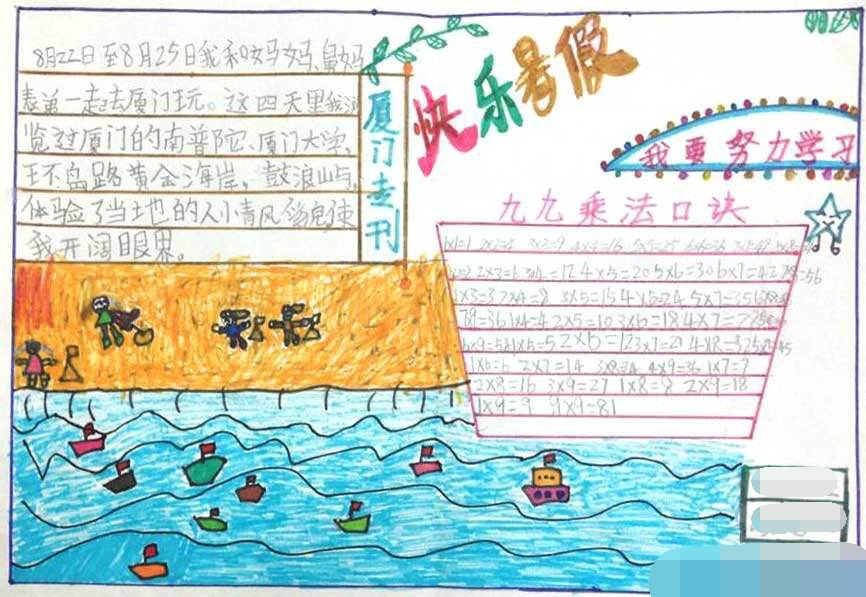 快乐暑假
8月22日至8月25日我和妈妈、舅妈
表弟一起去厦门玩。这四天里我游
览过厦门的南普陀、厦门大学、
环岛路黄金海岸,鼓浪屿,
体验了当地的人
我开阔眼界。
厦门专刊
我要努力学习
九九乘法口诀
1×1=1 2×2=4 3×3=9 4×4=16 5×5=25 6×6=36
2×3=6 4×5=20 5×6=30 6×7=42 =56
1×3=3 2×4=8 3×5=15 4×6=24 5×7=35
=36 1×4=4 2×5=10 3×6=18 4×7=
1×5=5 2×6=12 3×7=21 4×8=32
1×6=6 2×7=14 3×8=24 4×9=36 1×7=7
2×8=16 3×9=27 1×8=8 2×9=18
1×9=9 9×9=81